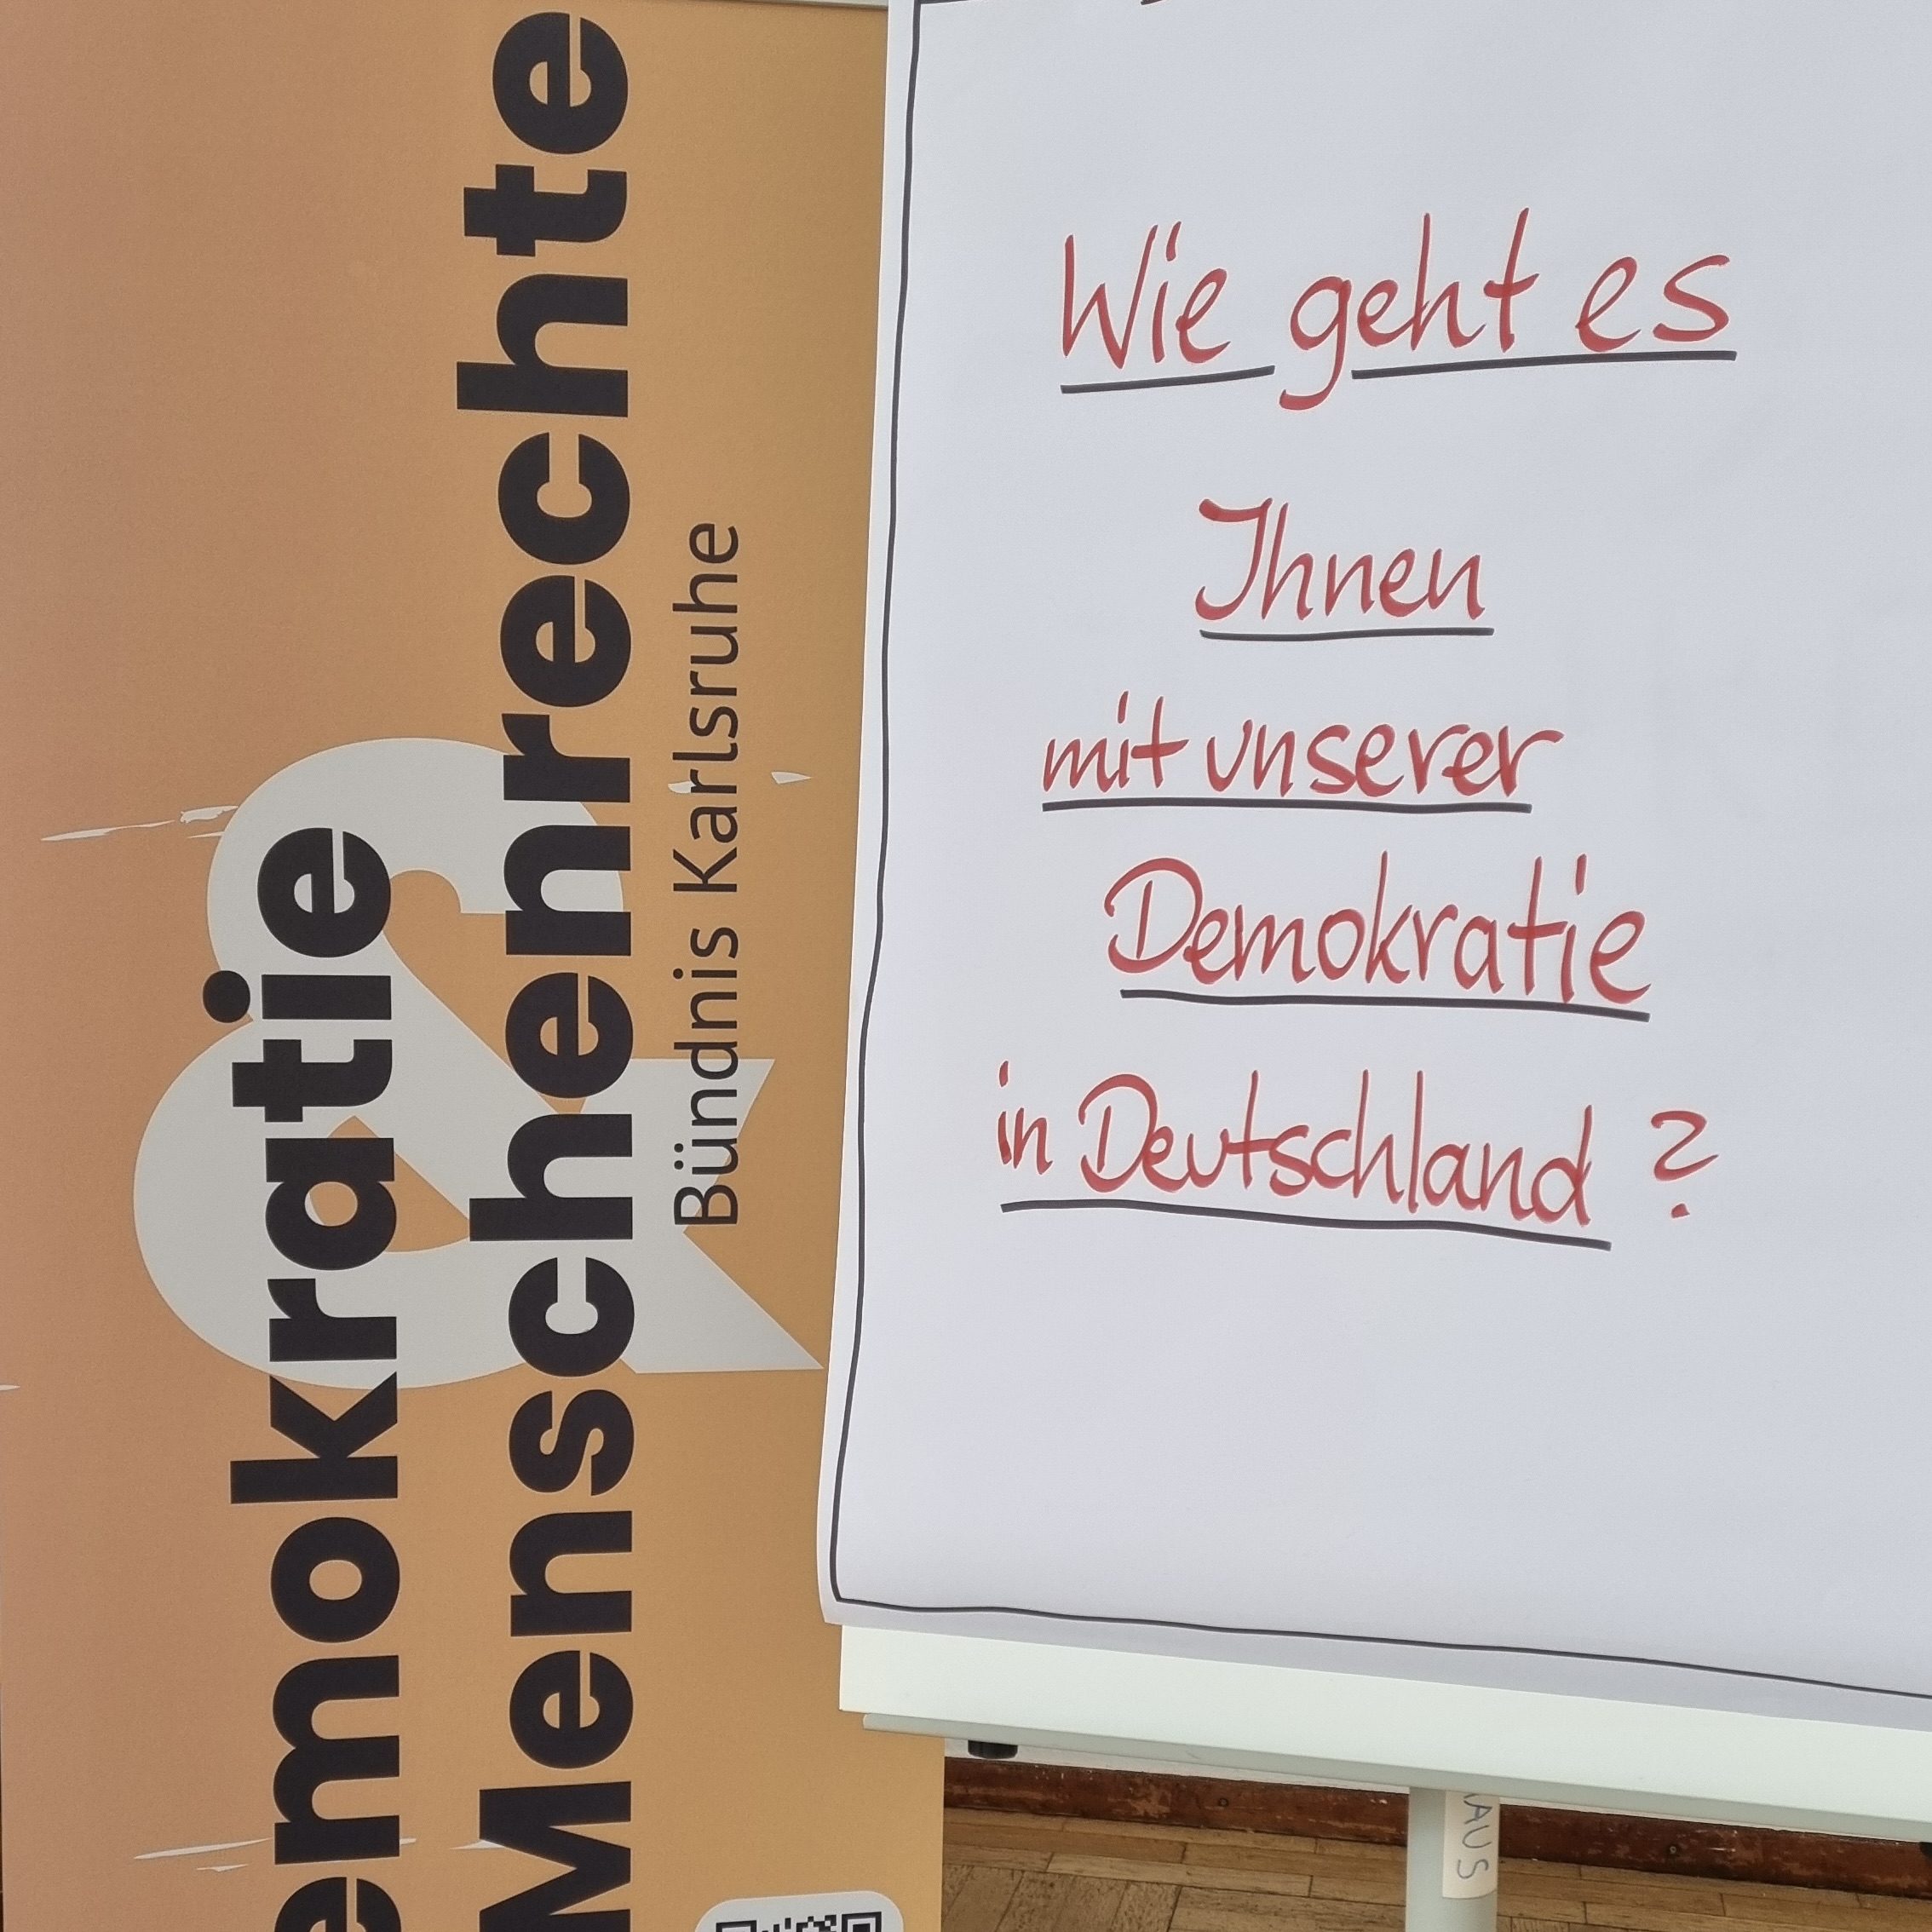 emokratie
&
Menschenrechte
Bündnis Karlsruhe
Wie geht es
Ihnen
mit unserer
Demokratie
in Deutschland?
AUS